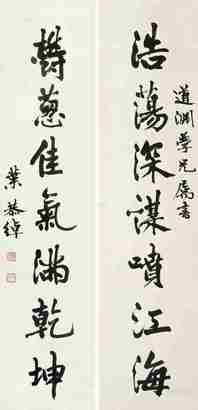 道淵學兄屬書
浩蕩深謀噴江海
鬱蔥佳氣滿乾坤
葉恭綽